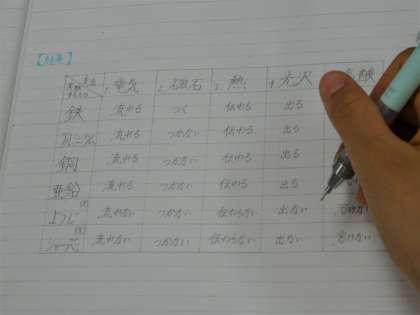 【結果】
1 電気 2 磁石 3 熱 4 光沢 酸
鉄 流れる つく 伝わる 出る
アルミニウム 流れる つかない 伝わる 出る
銅 流れる つかない 伝わる 出る
亜鉛 流れる つかない 伝わる 出る
流れない つかない 伝わらない 出ない 溶けない
流れない つかない 伝わらない 出ない 溶けない